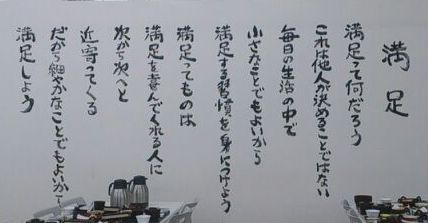 満足
満足って何だろう
これは他人が決めることではない
毎日の生活の中で
小さなことでもよいから
満足する習慣を身につけよう
満足ってものは
満足を喜んでくれる人に
次から次へと
近寄ってくる
だから細やかなことでもよいから
満足しよう